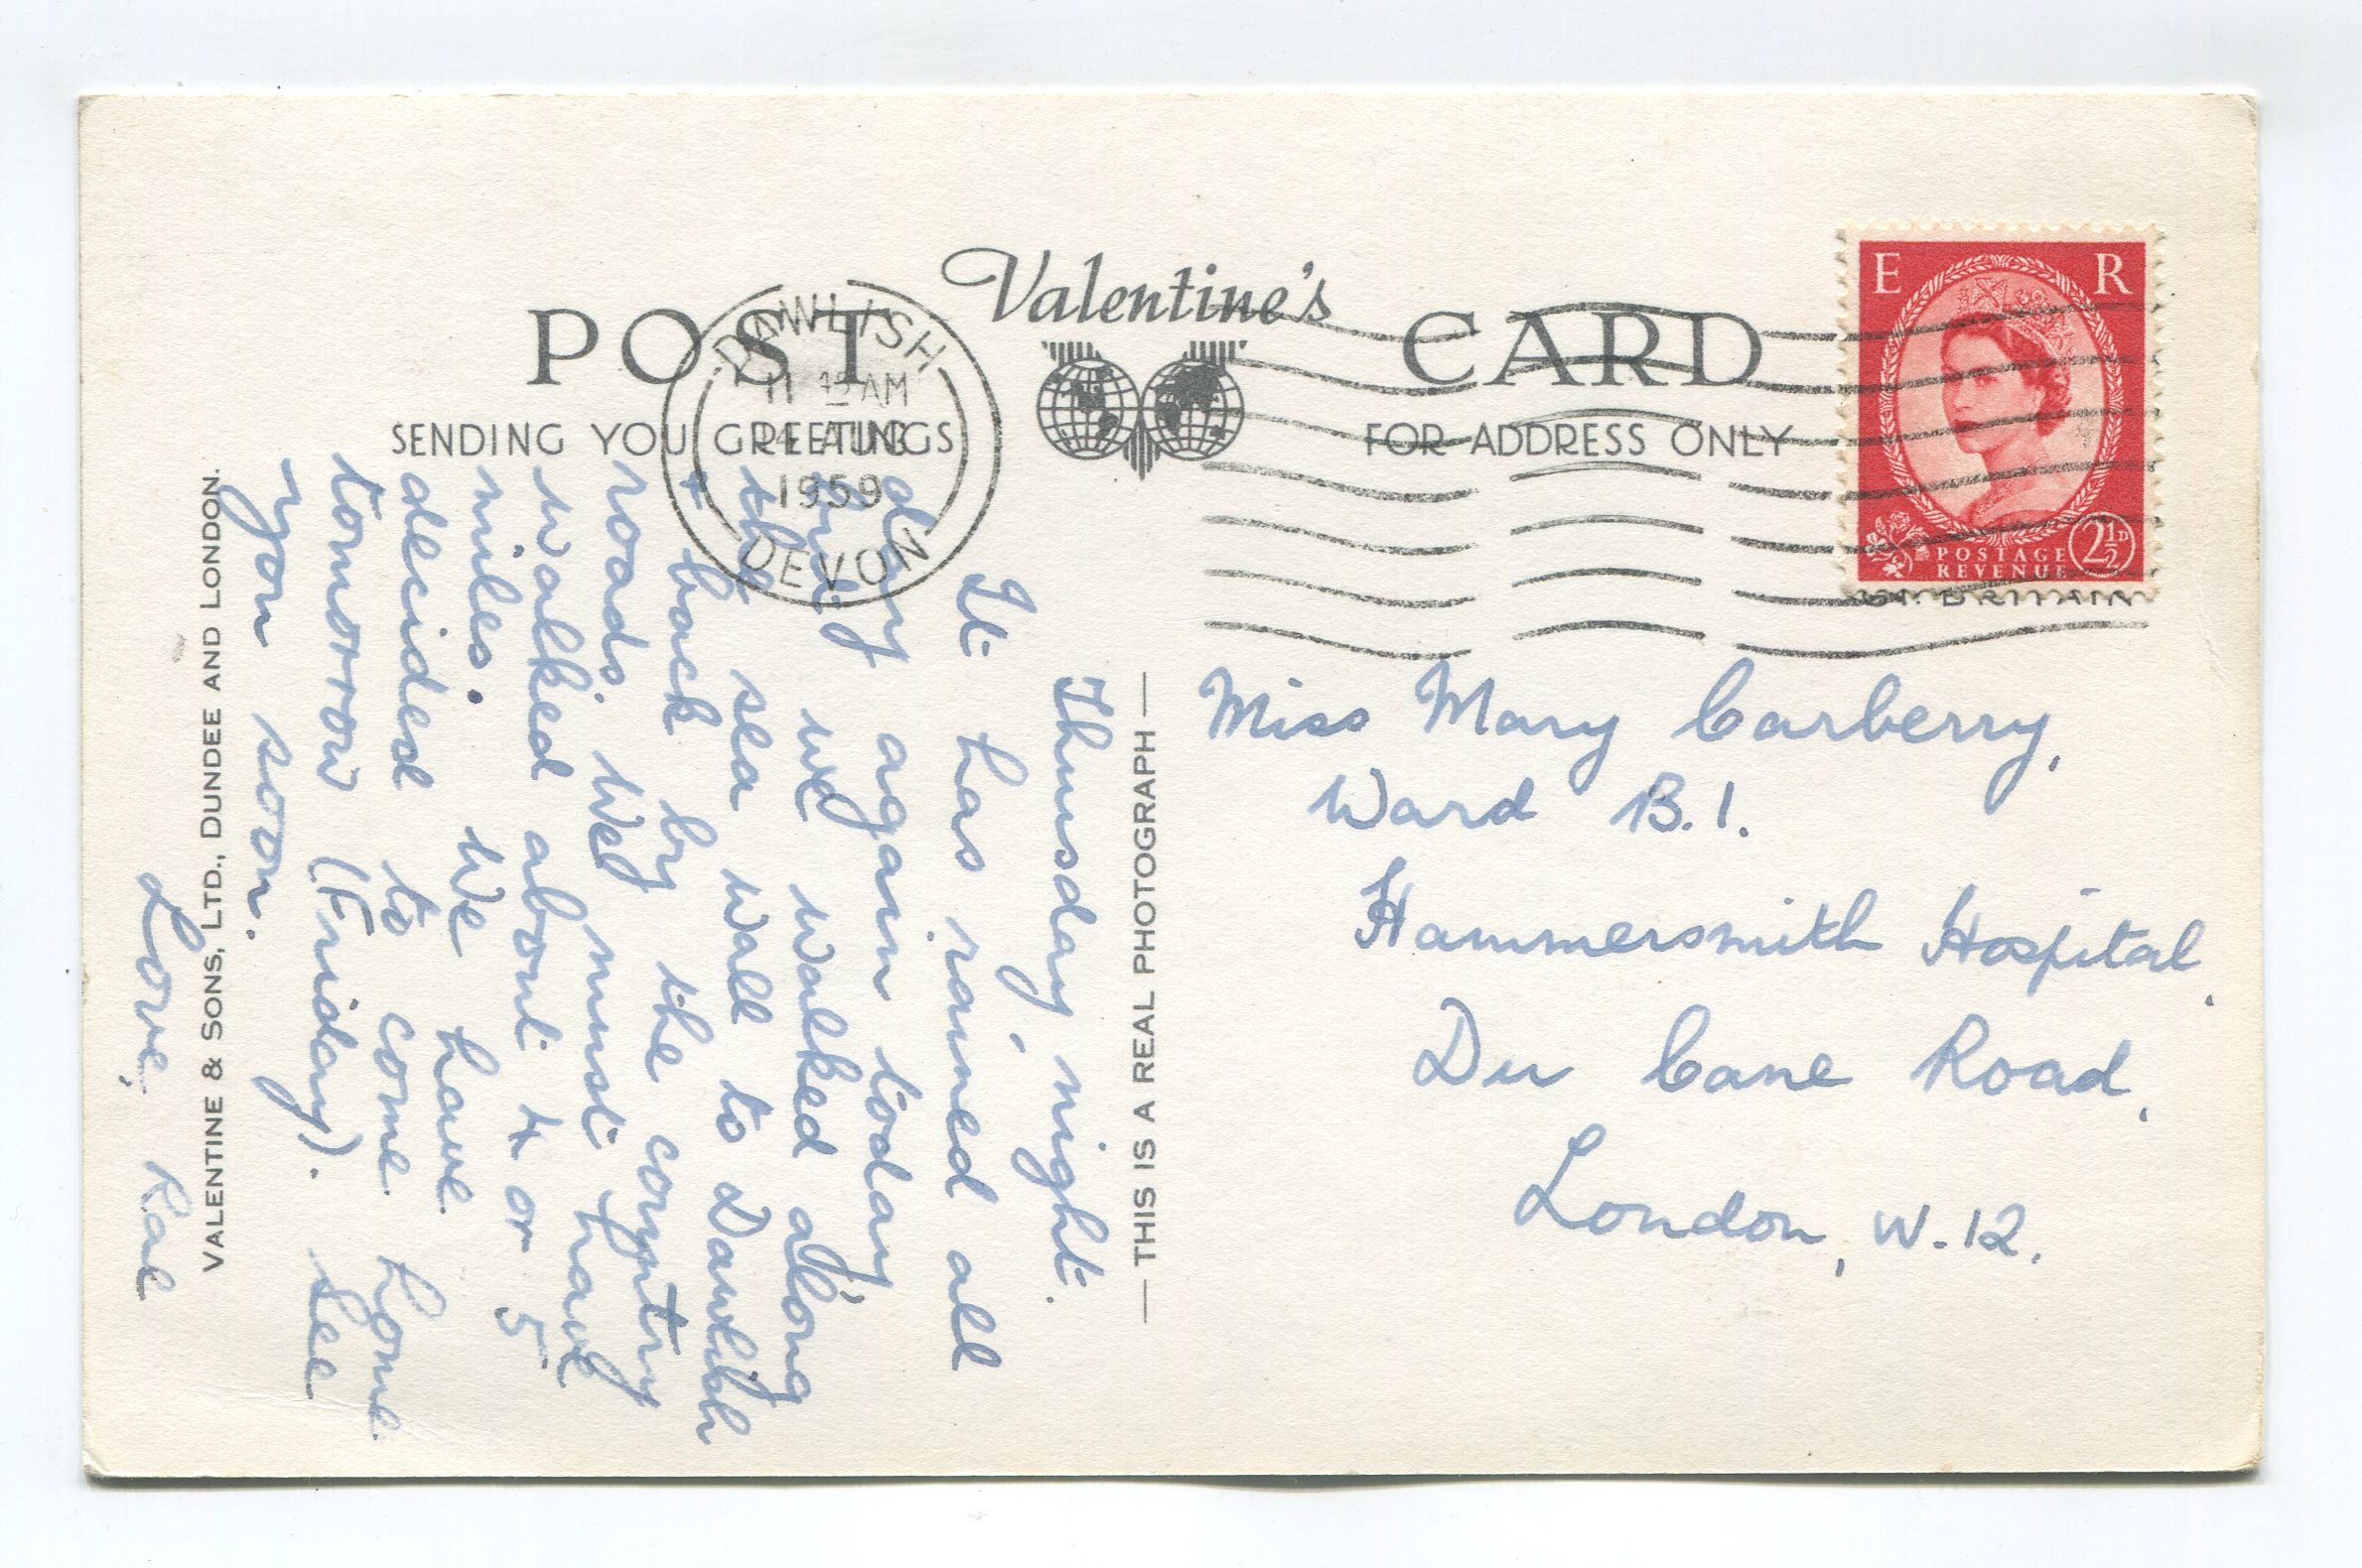 Valentine's
POST CARD
SENDING YOU GREETINGS
FOR ADDRESS ONLY
DAWLISH
11 45 AM
14 AUG
1959
DEVON
E R
POSTAGE
REVENUE
2½D
GT. BRITAIN
Thursday night.
It has rained all
day again today,
but we walked along
the sea wall to Dawlish
+ back by the country
roads. We must have
walked about 4 or 5
miles. We have
decided to come home
tomorrow (Friday). See
you soon.
Love,
VALENTINE & SONS, LTD., DUNDEE AND LONDON.
— THIS IS A REAL PHOTOGRAPH —
Miss Mary Carberry,
Ward B.1.
Hammersmith Hospital,
Du Cane Road,
London, W.12.